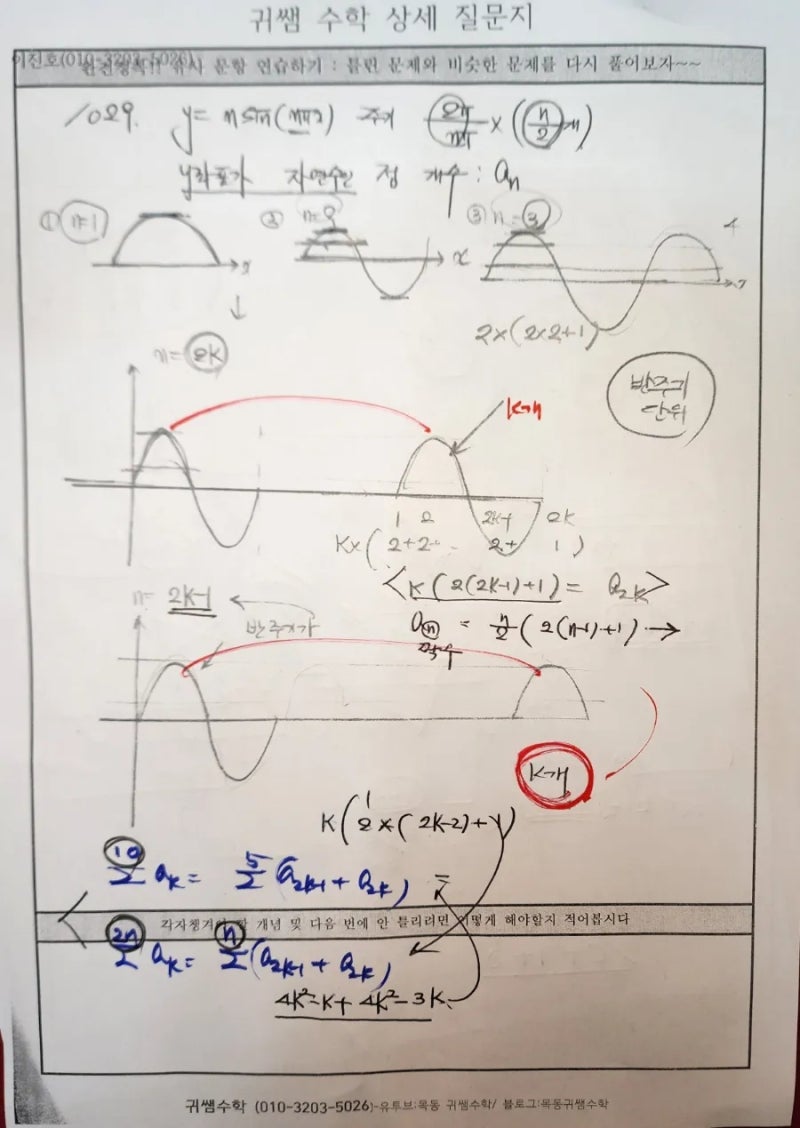 귀쌤 수학 상세 질문지
이진호(010-3203-5026)
유사 문항 연습하기 : 틀린 문제와 비슷한 문제를 다시 풀어보자~~
1029. y= n sin(nπx) 주기 2π/nπ × (n/2개)
y좌표가 자연수인 점 개수 : an
① n=1 ② n=2 ③ n=3
x x
2×(2×2+1)
n=2k
반주기 단위
k개
1 2 2k-1 2k
K×(2+2 ·· 2+ 1)
<K(2(2k-1)+1) = a2k>
n= 2k-1
반주기가
an = n/2(2(n-1)+1) →
짝수
k개
K(2×(2k-2)+1)
10 Σ ak = 5 Σ (a2k-1 + a2k) =
각자챙겨야 할 개념 및 다음 번에 안 틀리려면 어떻게 해야할지 적어봅시다
2n Σ ak = n Σ (a2k-1 + a2k)
4k²-k+ 4k²-3k
귀쌤수학 (010-3203-5026)-유투브:목동 귀쌤수학/ 블로그:목동귀쌤수학